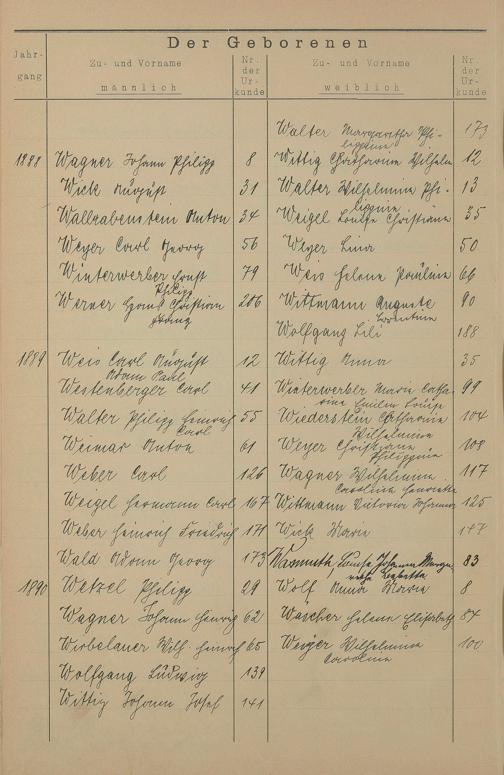 Der Geborenen
Jahr-
gang
Zu- und Vorname
männlich
Nr.
der
Ur-
kunde
Zu- und Vorname
weiblich
Nr.
der
Ur-
kunde
Walter Margaretha Phi- 173
lippine
1888 Wagner Johann Philipp 8 Wittig Catharina Wilhelm 12
Wick August 31 Walter Wilhelmina Phi- 13
lippine
Wallrabenstein Anton 34 Weigel Louise Christiane 35
Weyer Carl Georg 56 Weyer Lina 50
Winterwerber Ernst 79 Weis Helene Pauline 66
Philipp
Werner Christian 206 Wittmann Auguste 90
Franz
Wolfgang Lili 188
1889 Weis Carl August 12 Wittig Anna 35
Adam Paul
Westenberger Carl 41 Winterwerber Maria Catha- 99
rine Emilie Louise
Walter Philipp Heinrich 55 Wiederstein Catharina 104
Carl Wilhelmine
Weimar Anton 61 Weyer Christiane 108
Philippine
Weber Carl 126 Wagner Wilhelmine 117
Caroline Henriette
Weigel Hermann Carl 167 Wittmann Victoria Johanna 125
Weber Heinrich Friedrich 171 Wick Marie 147
Wald Adam Georg 173 Wasmuth, Louise Johanna Marga- 83
retha
1890 Wetzel Philipp 29 Wolf Anna Maria 8
Wagner Johann Heinrich 62 Wäscher Helene Elisabeth 84
Wirbelauer Wilh. Heinrich 65 Weiger Wilhelmine 100
Caroline
Wolfgang Ludwig 139
Wittig Johann Josef 141